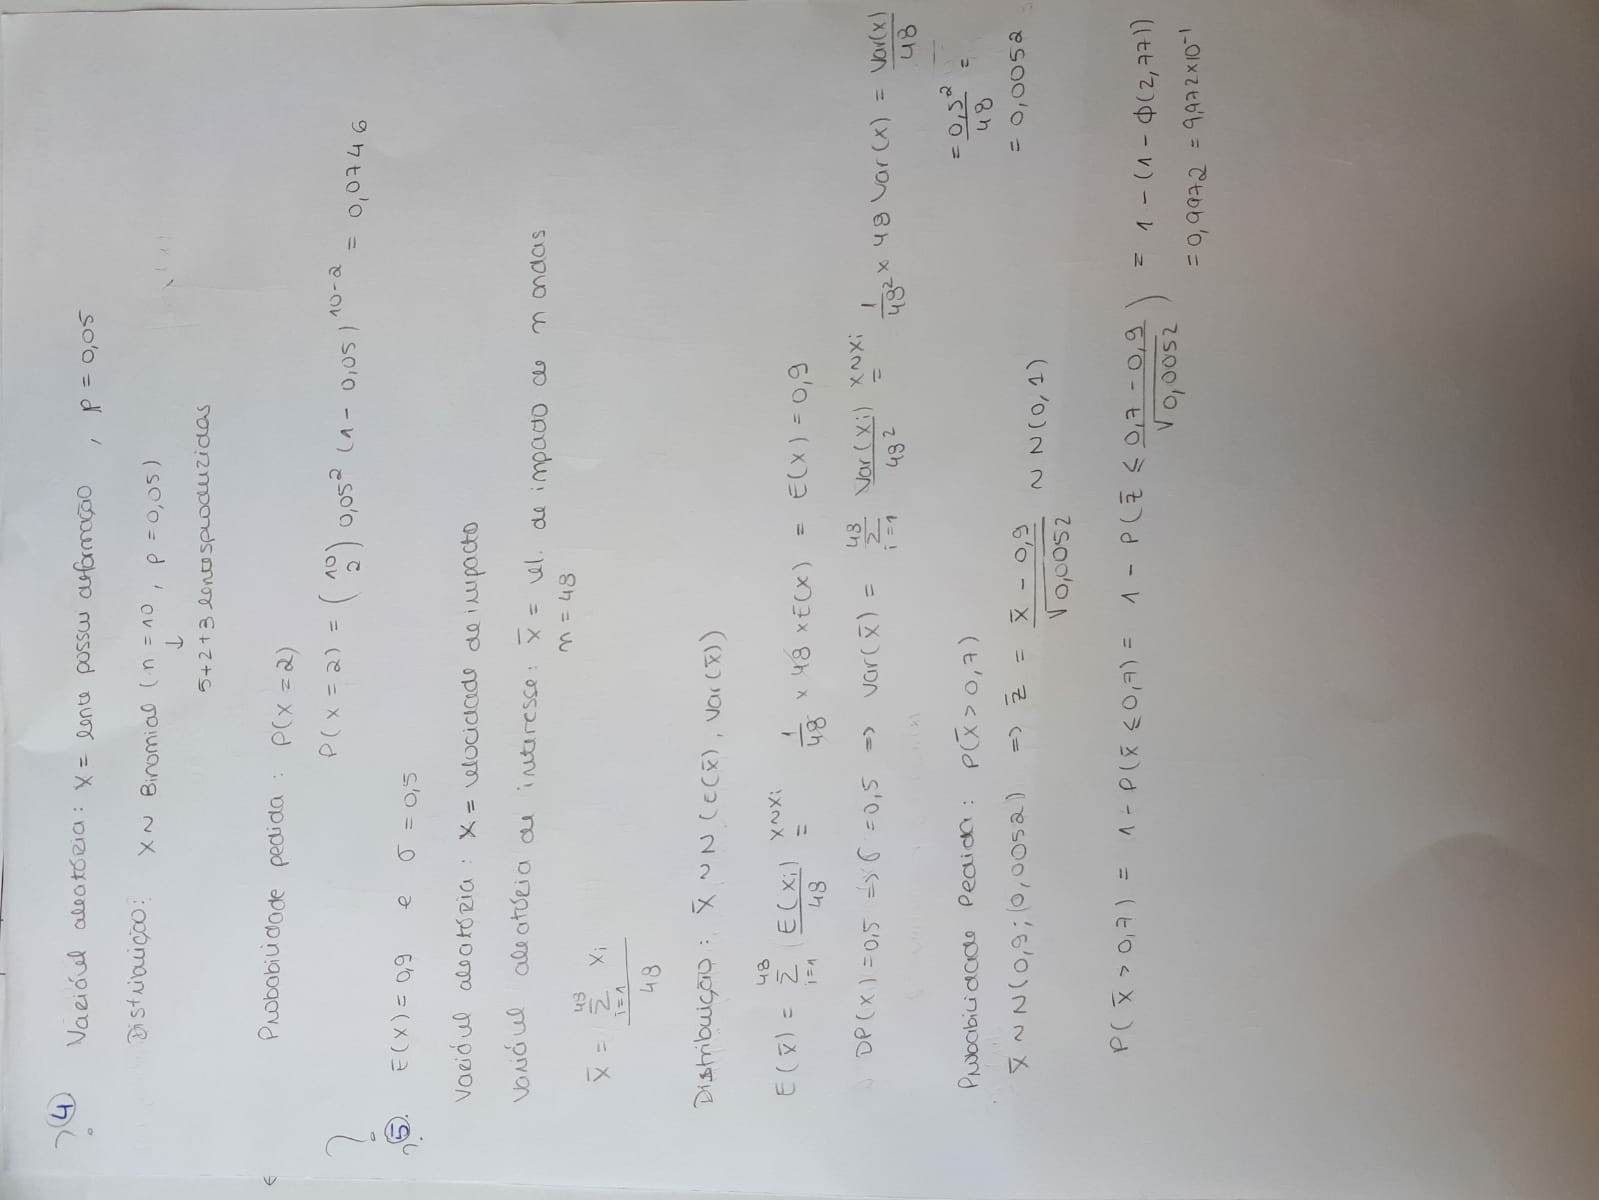 ? 4
Variável aleatória: X = lente possui deformação , p = 0,05
Distribuição: X ~ Binomial (n = 10 , p = 0,05)
↓
5+2+3 lentes produzidas
Probabilidade pedida: P(X = 2)
P(X = 2) = (10 2) 0,05² (1 - 0,05)^10-2 = 0,0746
?
? 5. E(X) = 0,9 e σ = 0,5
Variável aleatória: X = velocidade de impacto
Variável aleatória de interesse: X̄ = vel. de impacto de n ondas
n = 48
X̄ = Σ_{i=1}^{48} Xi / 48
Distribuição: X̄ ~ N (E(X̄), Var(X̄))
E(X̄) = Σ_{i=1}^{48} E(Xi)/48 =^{X~Xi} 1/48 × 48 × E(X) = E(X) = 0,9
DP(X) = 0,5 => σ = 0,5 => Var(X̄) = Σ_{i=1}^{48} Var(Xi)/48² =^{X~Xi} 1/48² × 48 Var(X) = Var(X)/48
= 0,5²/48 =
= 0,0052
Probabilidade Pedida: P(X̄ > 0,7)
X̄ ~ N(0,9; 0,0052) => Z̄ = X̄ - 0,9 / √0,0052 ~ N(0,1)
P(X̄ > 0,7) = 1 - P(X̄ ≤ 0,7) = 1 - P(Z̄ ≤ 0,7 - 0,9 / √0,0052) = 1 - (1 - Φ(2,77))
= 0,9972 = 9,972×10⁻¹